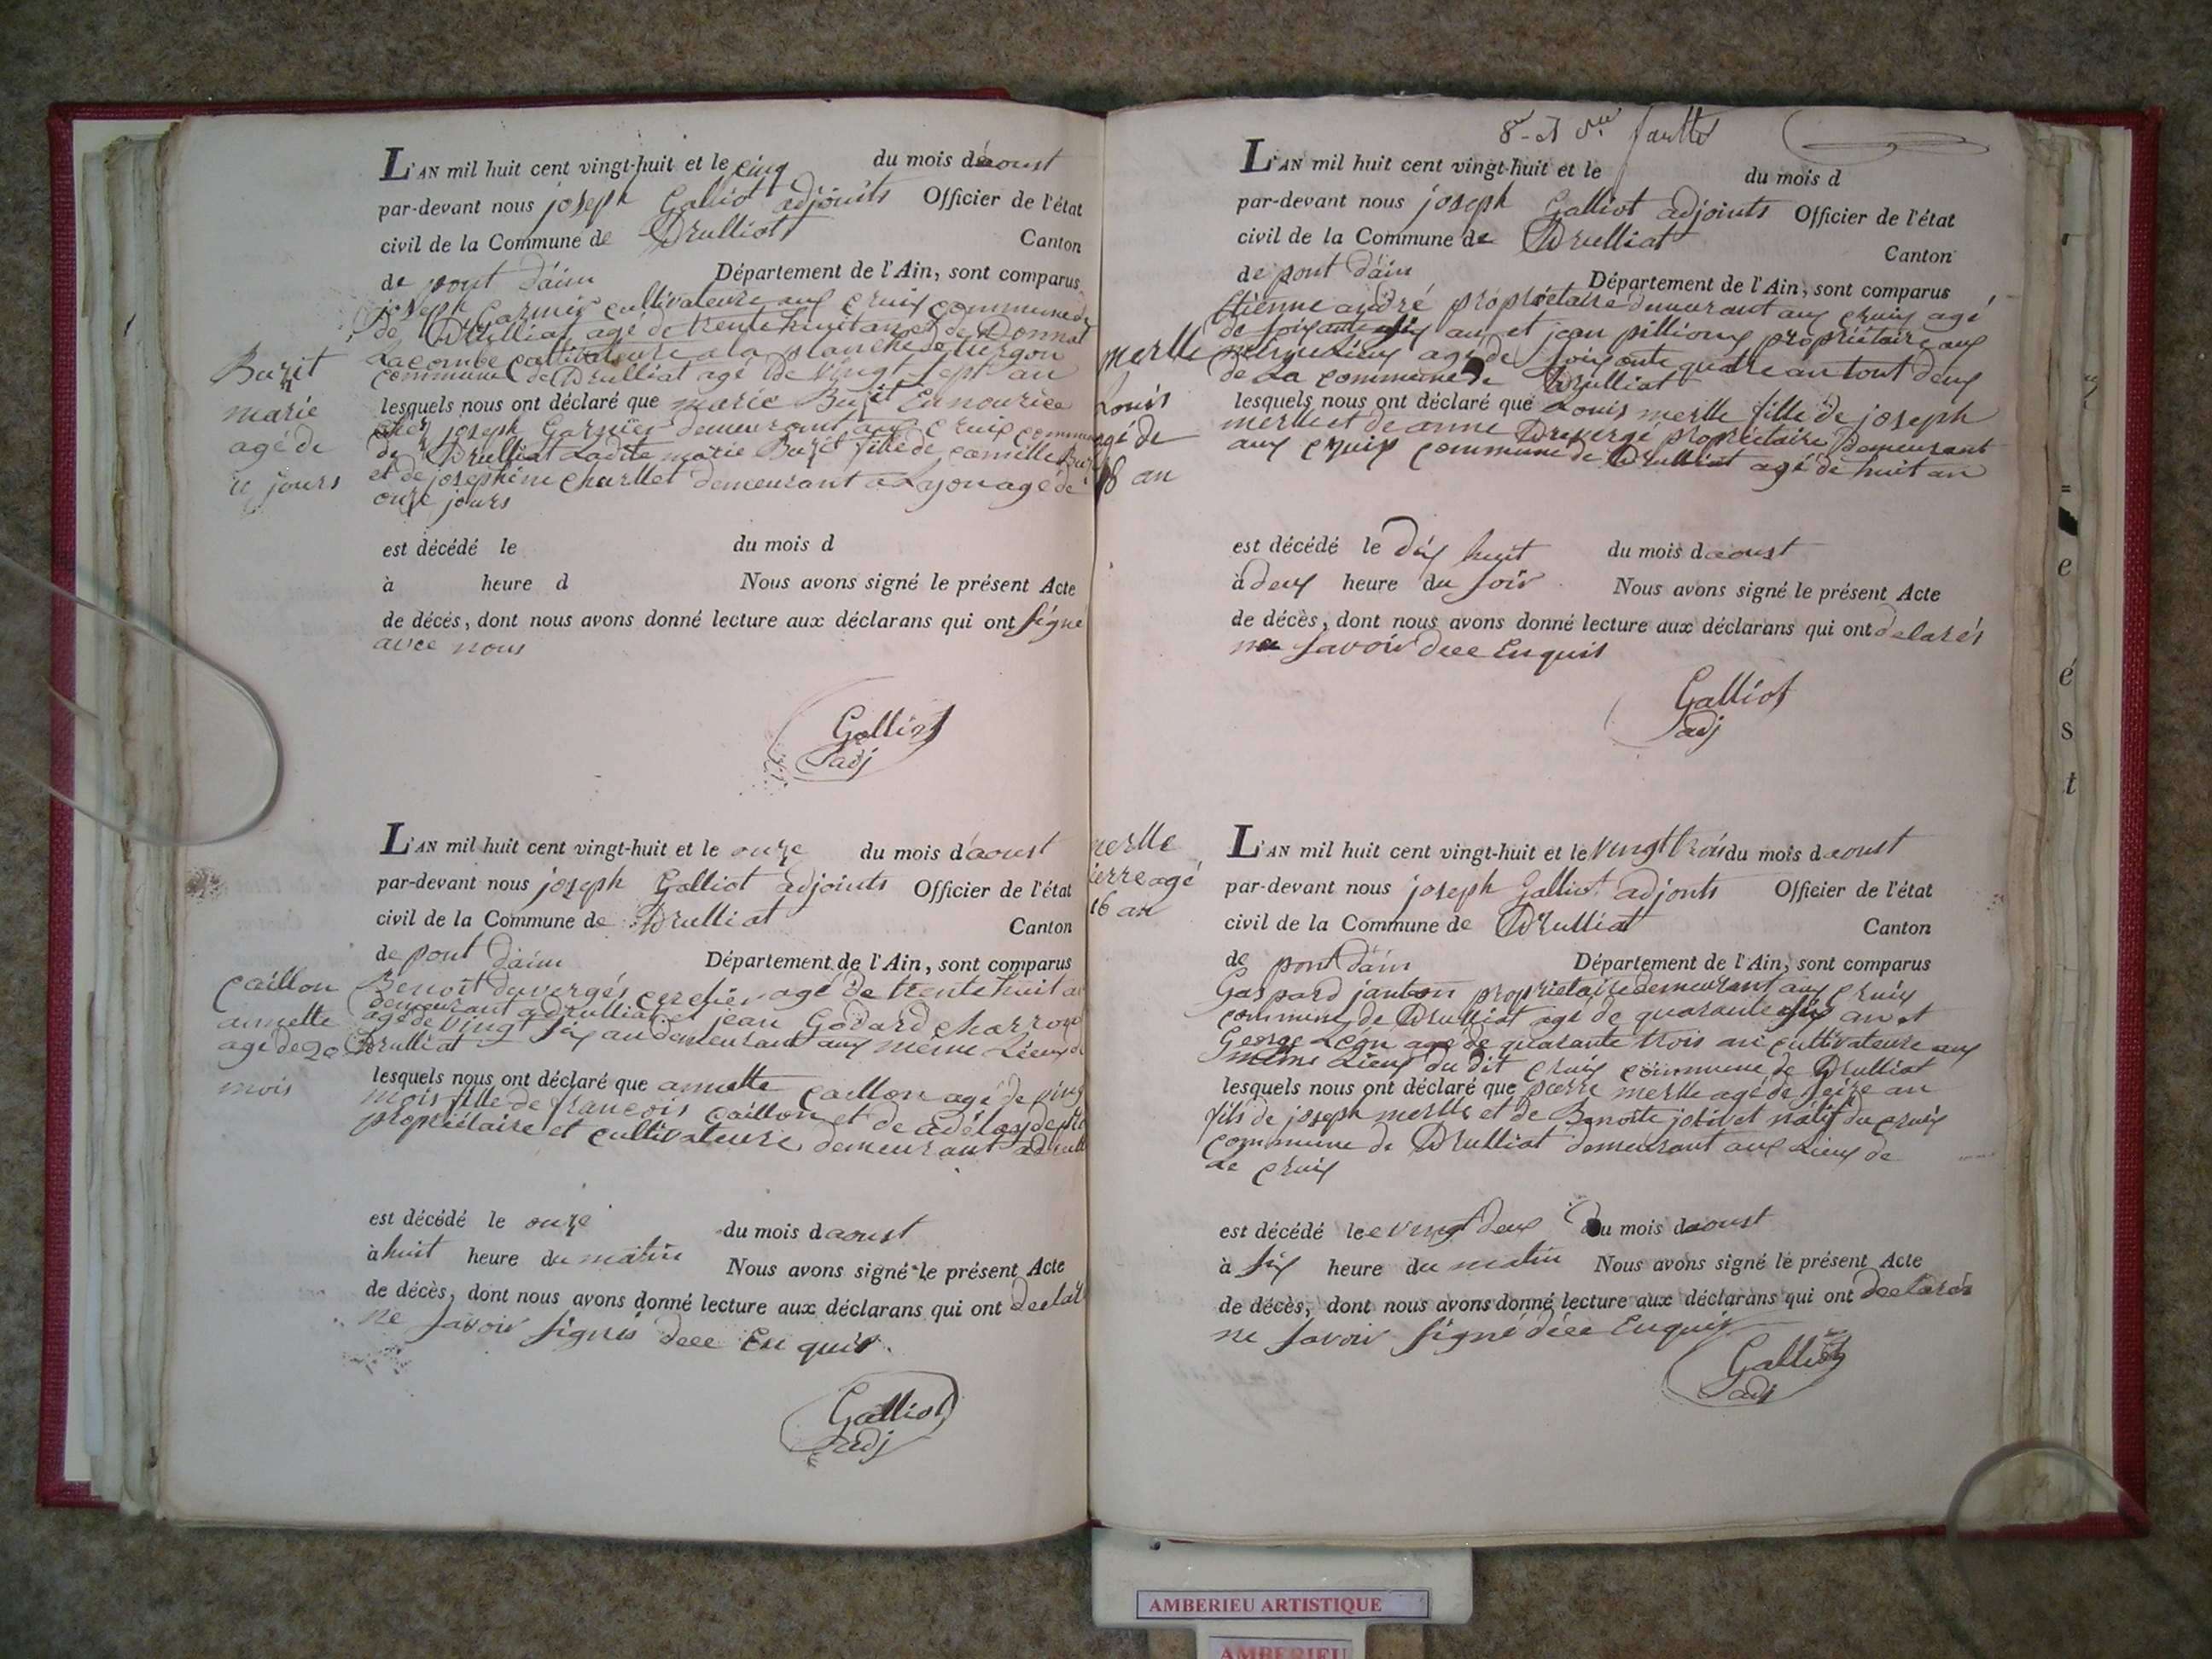 L'AN mil huit cent vingt-huit et le cinq du mois daoust
par-devant nous joseph Galliot adjoints Officier de l'état
civil de la Commune de Drulliat Canton
de pont dáin Département de l'Ain, sont comparus
joseph Garnier cultivateure aux cruix commune
de Drulliat agé de trente huit an et de Donnat
Lacombe cultivateure a la planche de turgon
commune de Drulliat agé de vingt sept an
Buzit
marie
agé de
11 jours
lesquels nous ont déclaré que marie Buzit En nourice
chez joseph Garnier demeurant aux cruix commune
de Drulliat Ladite marie Buzit fille de camille
et de josephine charllet demeurant a Lyon agé de
onze jours
est décédé le du mois d
à heure d Nous avons signé le présent Acte
de décès, dont nous avons donné lecture aux déclarans qui ont signé
avec nous
Galliot
adj
L'AN mil huit cent vingt-huit et le onze du mois d'aoust
par-devant nous joseph Galliot adjoints Officier de l'état
civil de la Commune de Drulliat Canton
de pont dáin Département de l'Ain, sont comparus
Benoit duvergés agé de trente huit
demeurant a Drulliat et jean Godard charron
agé de vingt six an demeurant aux même Lieux
Drulliat
caillon
annette
agé de 20
mois
lesquels nous ont déclaré que annette caillon agé de
mois fille de francois caillon et de
propriétaire et cultivateure demeurant a
est décédé le onze du mois daoust
à huit heure du matin Nous avons signé le présent Acte
de décès, dont nous avons donné lecture aux déclarans qui ont
ne savoir signés deee Enquis
Galliot
adj
L'AN mil huit cent vingt-huit et le du mois d
par-devant nous joseph Galliot adjoints Officier de l'état
civil de la Commune de Drulliat Canton
de pont dáin Département de l'Ain, sont comparus
Etienne andré propriétaire demeurant aux cruix agé
de soixante six an et jean pillioux propriétaire aux
même Lieux agé de soixante quatre an tout deux
de La commune de Drulliat
merlle
Louis
agé de
8 an
lesquels nous ont déclaré que Louis merlle fille de joseph
merlle et de anne propriétaire demeurant
aux cruix commune de Drulliat agé de huit an
est décédé le dix huit du mois daoust
à deux heure du soir Nous avons signé le présent Acte
de décès, dont nous avons donné lecture aux déclarans qui ont delarés
ne savoir deee Enquis
Galliot
adj
merlle
pierre agé
16 an
L'AN mil huit cent vingt-huit et le vingt trois du mois daoust
par-devant nous joseph Galliot adjonts Officier de l'état
civil de la Commune de Drulliat Canton
de pont dáin Département de l'Ain, sont comparus
Gaspard janton propriétaire demeurant aux cruix
commune de Drulliat agé de quarante six an et
George Léon agé de quarante trois an cultivateure aux
même Lieux du dit cruix commune de Drulliat
lesquels nous ont déclaré que pierre merlle agé de seize an
fils de joseph merlle et de Benoite jolivet natif du cruix
commune de Drulliat demeurant aux Lieux de
de cruix
est décédé le vingt deux du mois daoust
à six heure du matin Nous avons signé le présent Acte
de décès, dont nous avons donné lecture aux déclarans qui ont declarés
ne savoir signé deee Enquis
Galliot
adj
e
é
s
t
AMBERIEU ARTISTIQUE
AMBERIEU